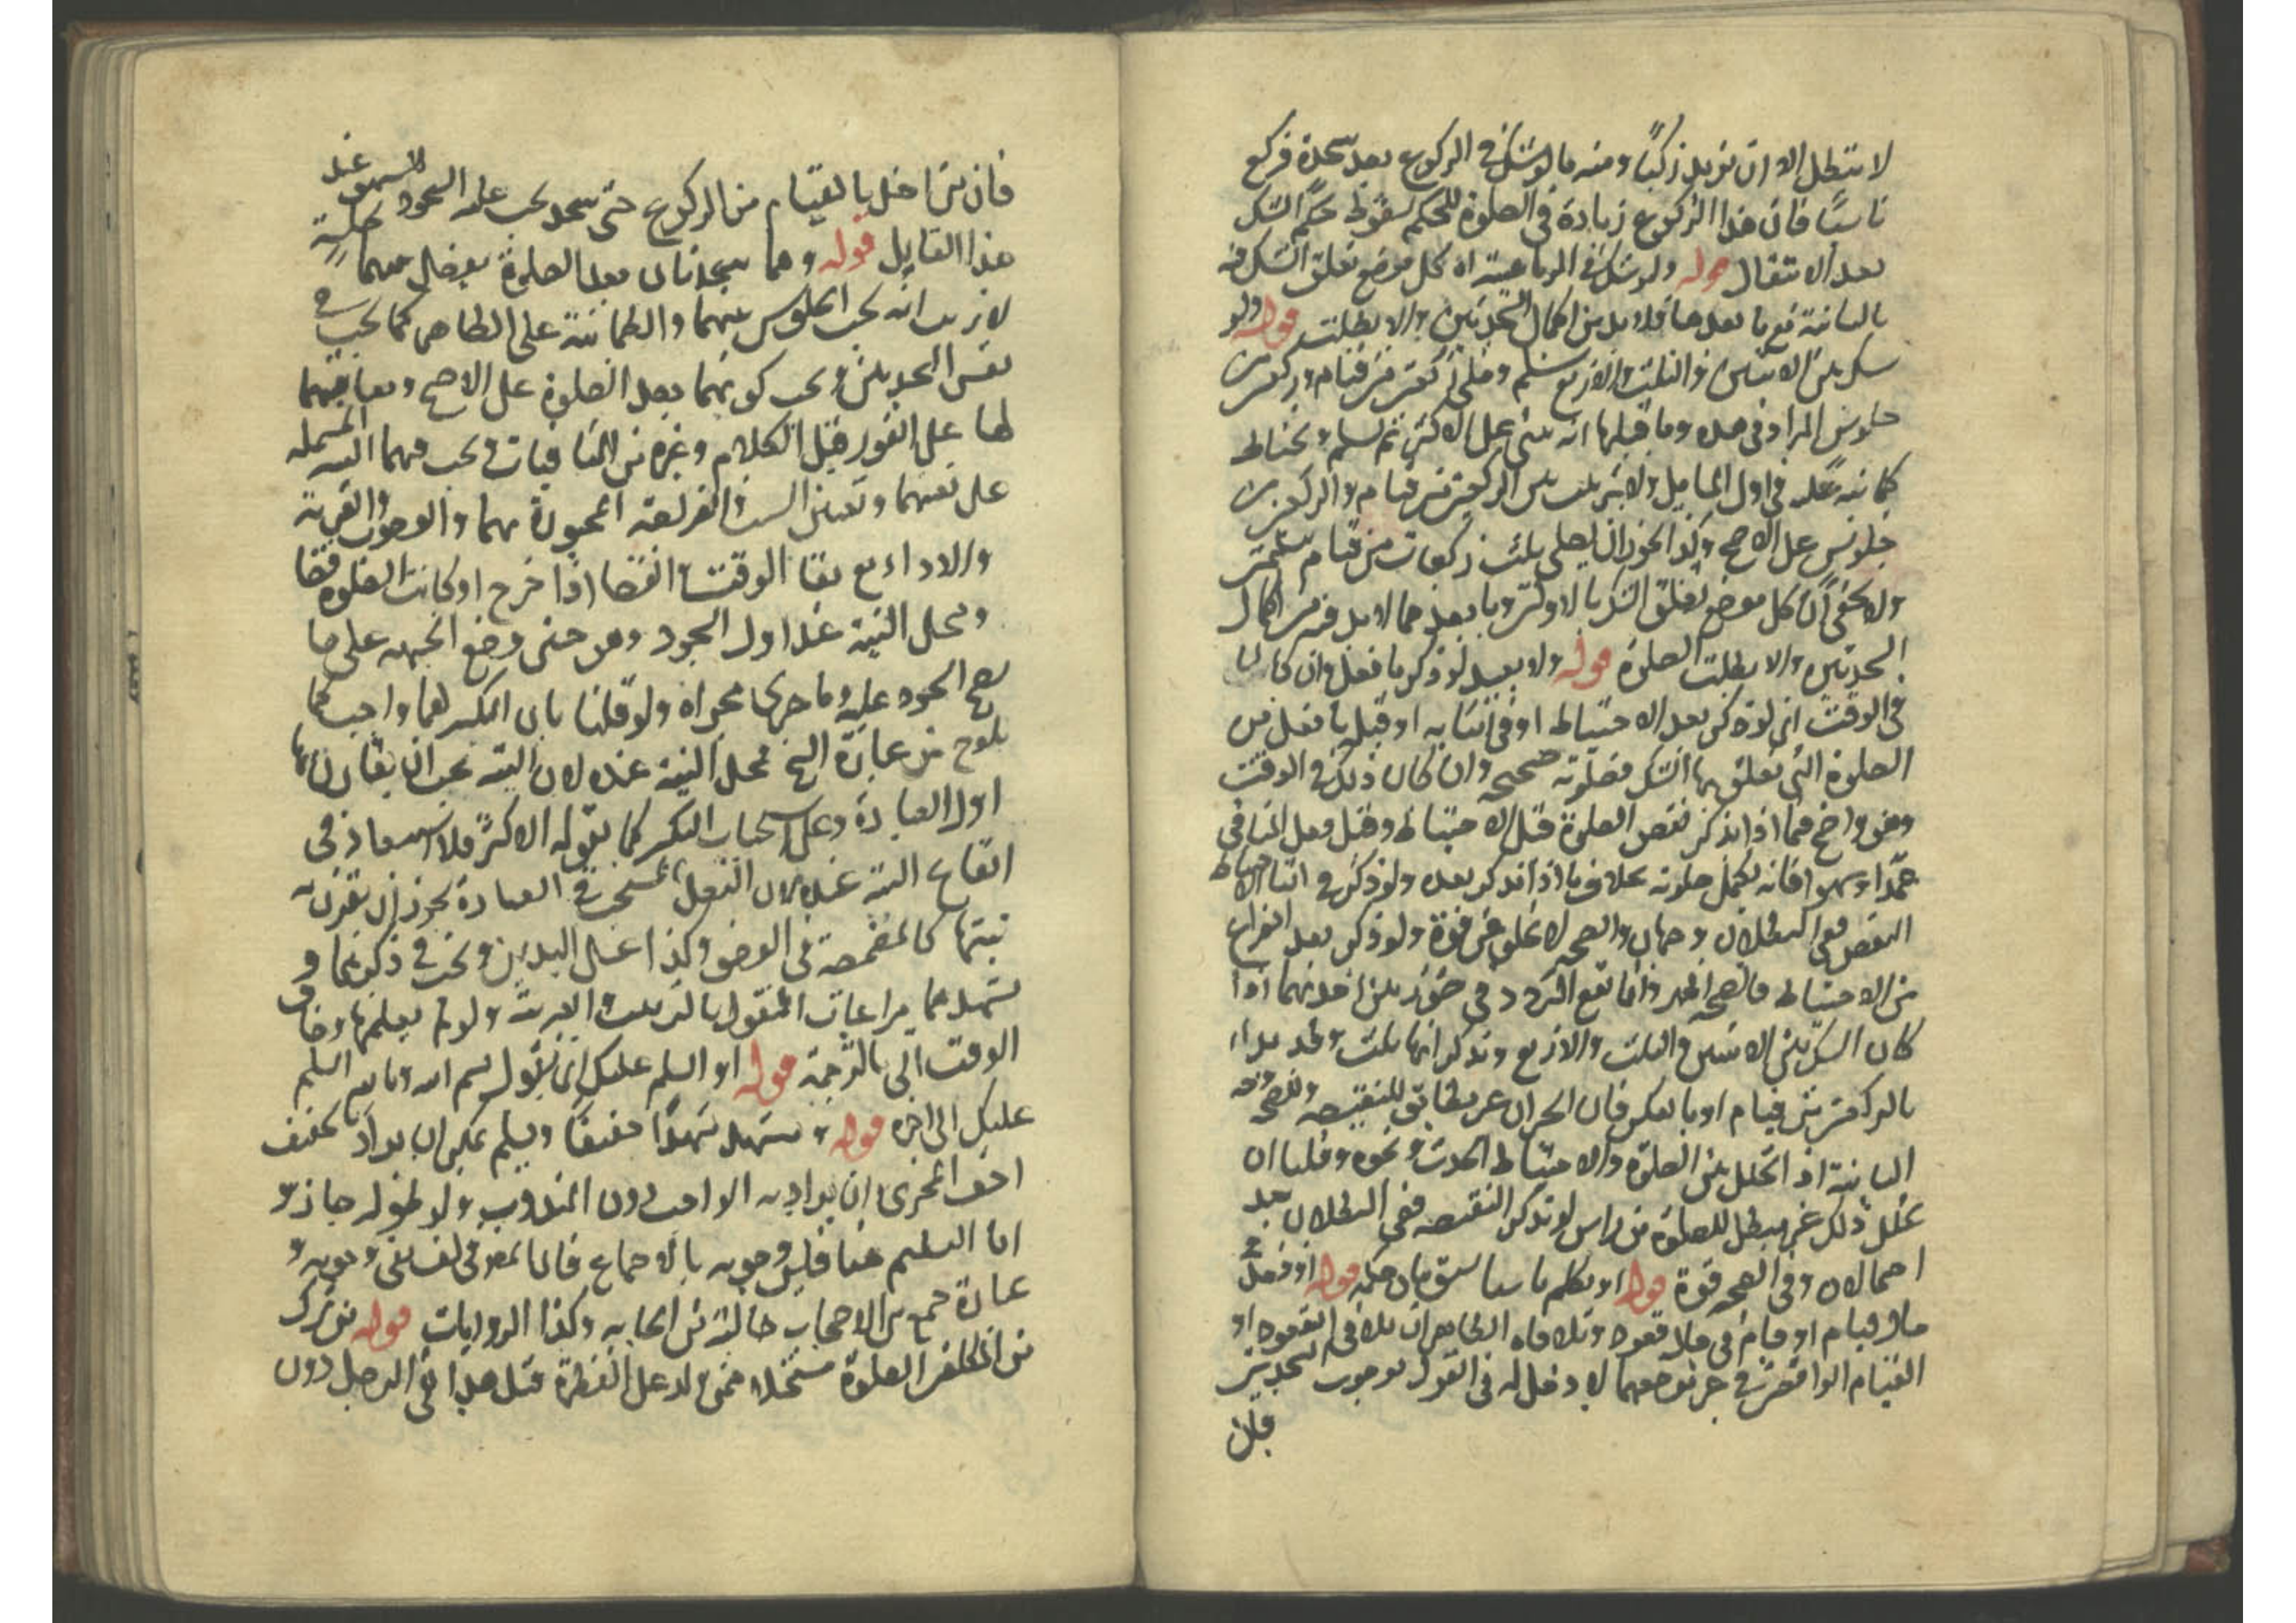 لا تبطل الا ان يزيد ركنا ومنه ما لو شك في الركوع بعد سجدة فركع
ناسيا فان هذا الركوع زيادة في الصلوة للحكم بسقوط حكم الشك
بعد الانتقال قوله ولو شك في الرباعية اه كل موضع تعلق الشك فيه
بالثانية مع ما بعدها فلا بد من اكمال السجدتين والا بطلت قوله ولو
شك بين الاثنتين والثلث والاربع سلم وصلى ركعتين من قيام وركعتين
جلوس المراد في هذه وما قبلها انه يبني على الاكثر ثم يسلم ويحتاط
كما نبه عليه في اول والترتيب بين الركعتين من قيام والركعتين من
جلوس على الاصح وكذا يجوز ان يصلي ثلث ركعات من قيام بتسليمتين
ولا يخفى ان كل موضع تعلق الشك بالاوليين وما بعدهما لا بد فيه من اكمال
السجدتين والا بطلت الصلوة قوله ولا يعيد لو ذكر ما فعل وان كان
في الوقت اي لو ذكر بعد الاحتياط او في اثنايه او قبله ما فعل من
الصلوة التي تعلق بها الشك فصلوته صحيحه وان كان ذلك في الوقت
وهو واضح فيما اذا تذكر نقص الصلوة قبل الاحتياط وقبل فعل المنافي
عمدا وسهوا فانه يكمل صلوته بخلاف ما اذا تذكر بعده ولو ذكر في اثنا الاحتياط
النقص ففي البطلان وجهان والصحه لا تخلو من قوة ولو ذكر بعد الفراغ
من الاحتياط فالصحه وانما يقع التردد في صورتين احديهما اذا
كان الشك بين الاثنتين والثلث والاربع وتذكر انها ثلث وقد بدا
بالركعتين من قيام او بالعكس فان الجبران غير مطابق للنقيصه
الثانية اذا تخلل بين الصلوة والاحتياط الحدث ونحوه وقلنا ان
تخلل ذلك غير مبطل للصلوة من راس لو تذكر النقيصه ففي البطلان بعد
احتمالان وفي الصحه قوة قوله او تكلم ناسيا سبق بيان حكمه قوله او قعد في
حال قيام او قام في حال قعود وتلافاه الظاهر ان تلافي القعود او
القيام الواقعين في غير موضعهما لا دخل له في القول بوجوب السجدتين
فان
فان من اخل بالقيام من الركوع حتى سجد يجب عليه السجود للسهو عند
هذا القايل قوله وهما سجدتان بعد الصلوة يفصل بينهما بجلسة
لا ريب انه يجب الجلوس بينهما والطمانينة على الظاهر كما يجب في
نفس السجدتين ويجب كونهما بعد الصلوة على الاصح
لها على الفور قبل الكلام وغيره من المنافيات ويجب فيهما النية المشتملة
على تعيينهما وتعيين السبب والفريضه المجبورة بهما والوجوب والقربة
والاداء مع بقا الوقت والقضا اذا خرج او كانت الصلوة قضا
ومحل النية عند اول السجود وهو حين وضع الجبهه على ما
يصح السجود عليه وما جرى مجراه ولو قلنا بان التكبير لهما واجب كما
يلوح من عبارة الشيخ فمحل النية عنده لان النية يجب ان يقارن بها
اول العبادة وعلى استحباب التكبير كما يقوله الاكثر فلا استبعاد في
ايقاع النية عنده لان الفعل المستحب في العبادة يجوز ان تقترن به
نيتها كالمضمضة في الوضو وكذا غسل اليدين ويجب في ذكرهما و
تشهدهما مراعات المنقول بالترتيب والعربية ولو لم يعلمها وضاق
الوقت اتى بالترجمة قوله او السلم عليك اي يقول بسم الله وبالله السلم
عليك الى اخره قوله ويتشهد تشهدا خفيفا ويسلم يمكن ان يراد بالخفيف
اخف المجزي ان يراد به الواجب دون المندوب ولو طوله جاز و
اما التسليم هنا فليس وجوبه بالاجماع وجوبه و
عبارة جمع من الاصحاب خالية من ايجابه وكذا الروايات قوله من ترك
من المكلفين الصلوة مستحلا ممن ولد على الفطرة قتل هذا في الرجل دون